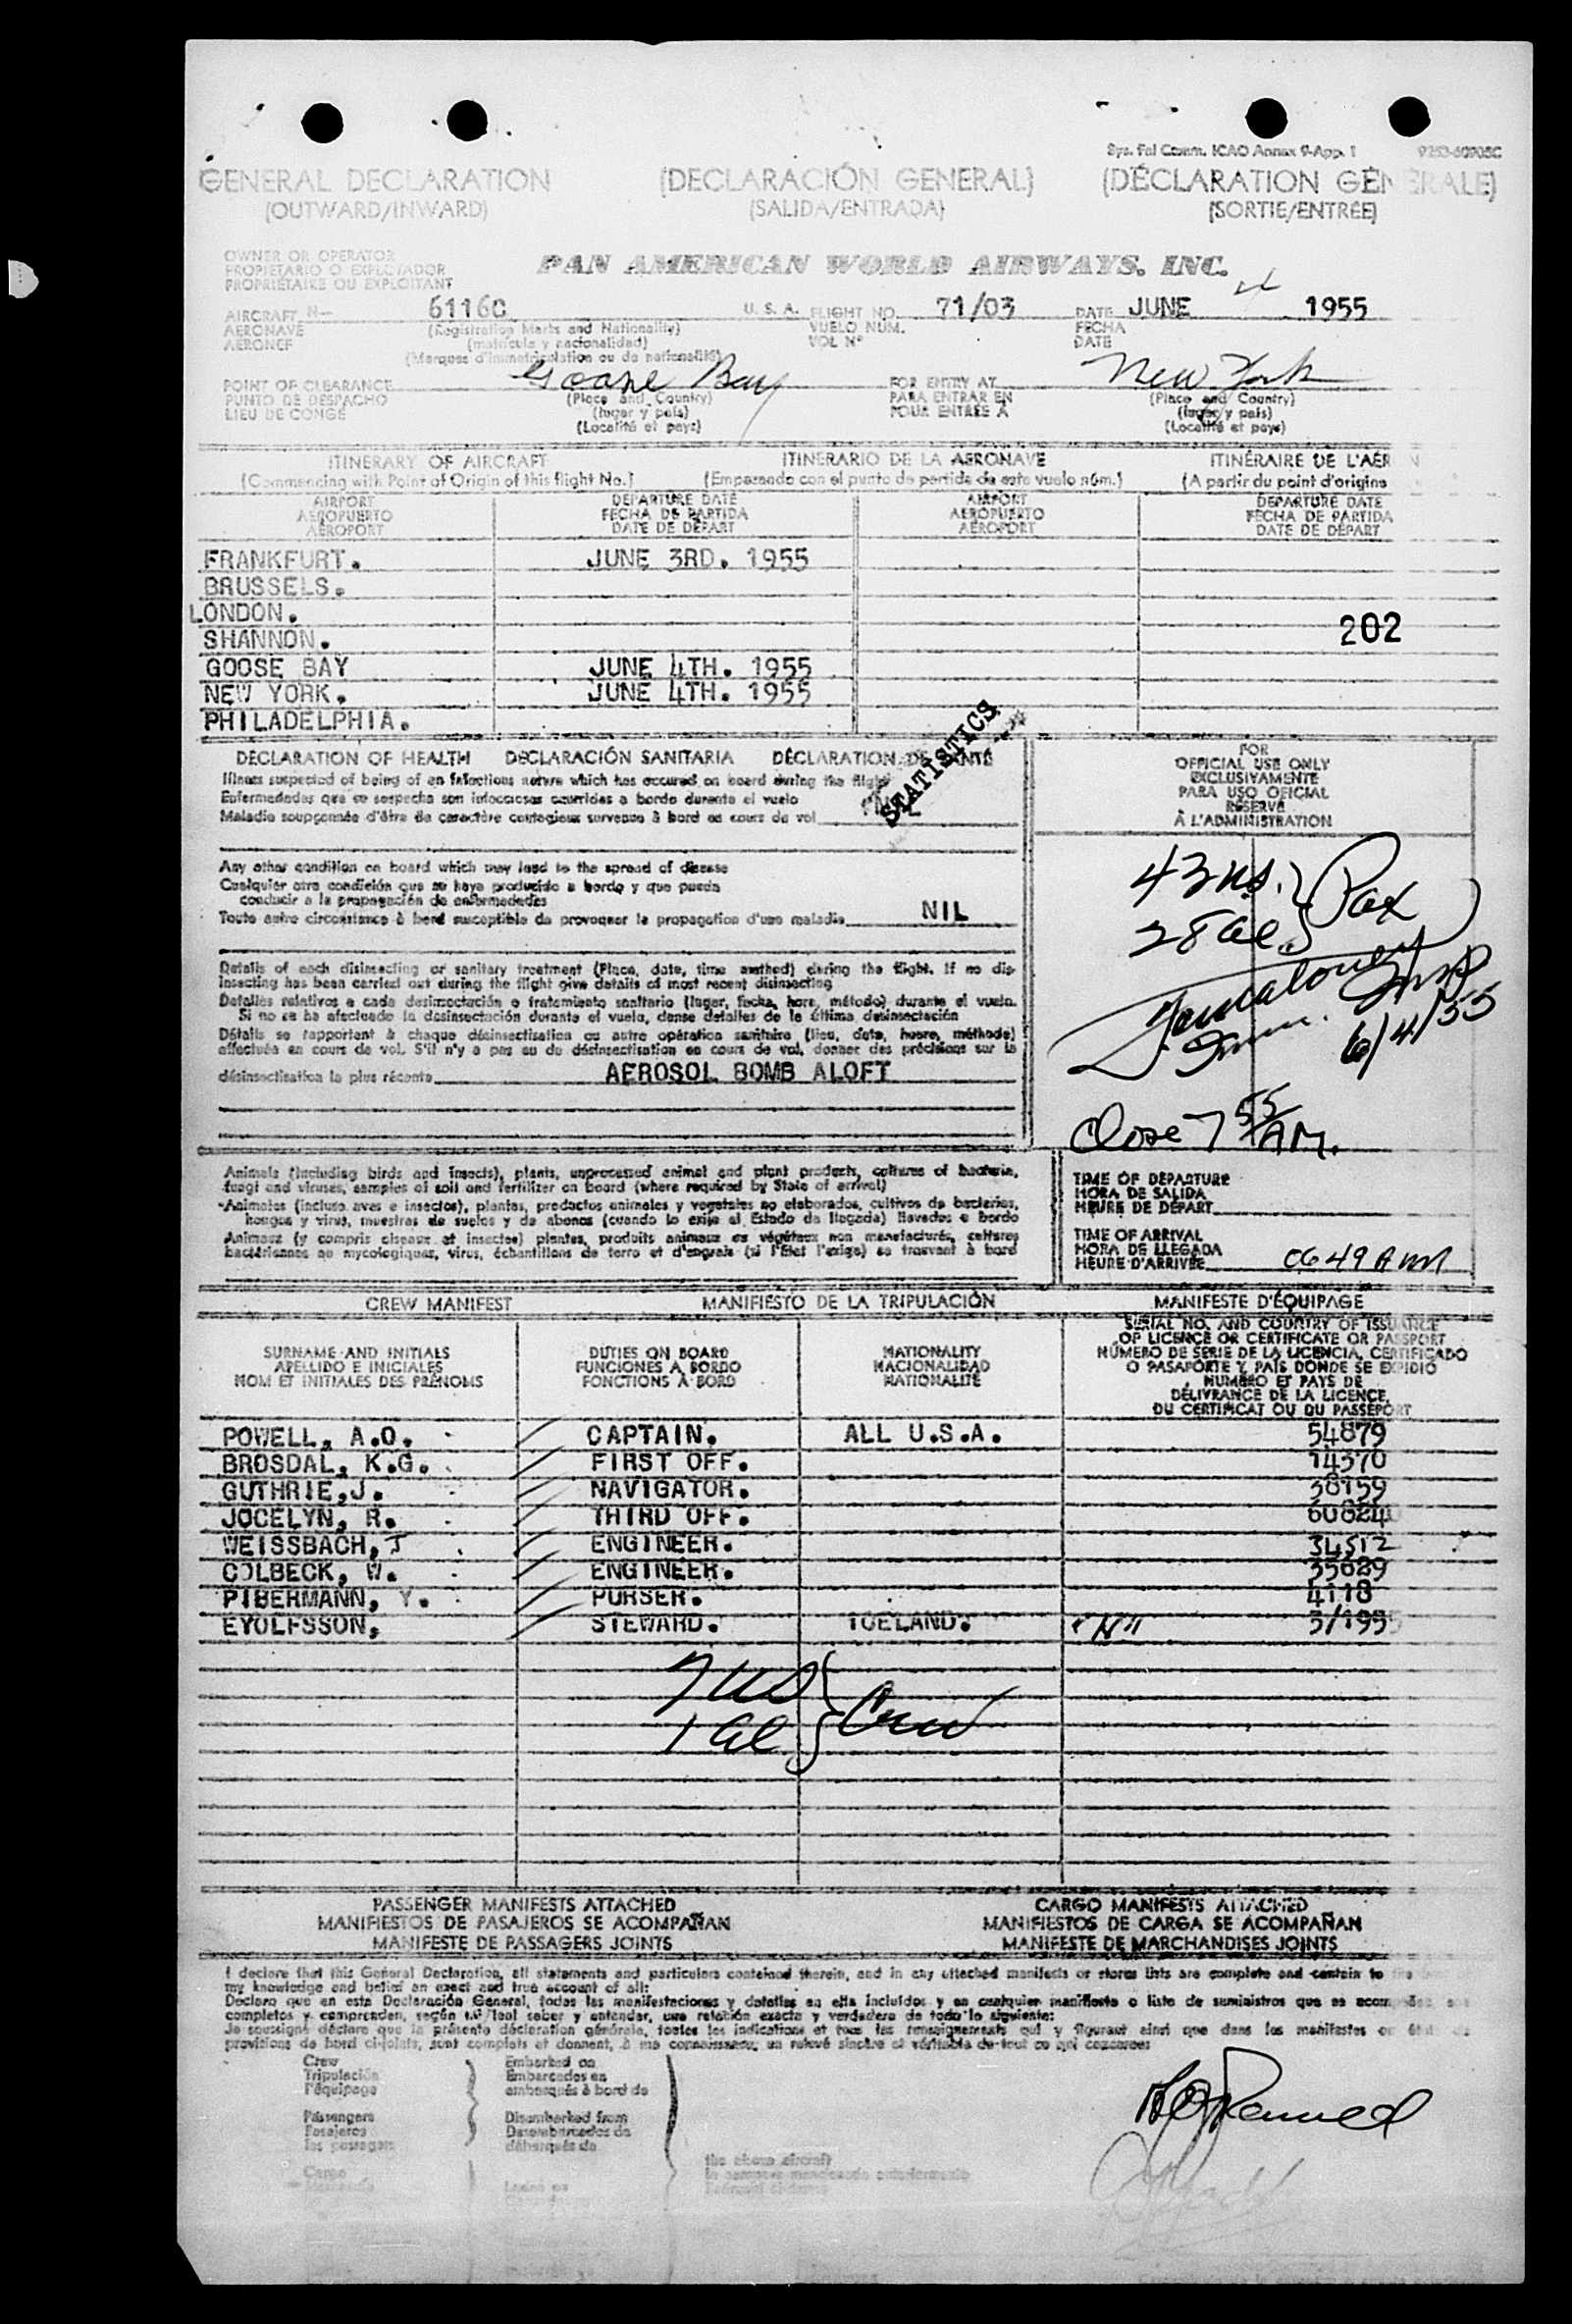 Sys. Fal Comm. ICAO Annex 9-App. 1
GENERAL DECLARATION (DECLARACIÓN GENERAL) (DÉCLARATION GÉNÉRALE)
(OUTWARD/INWARD) (SALIDA/ENTRADA) (SORTIE/ENTRÉE)
OWNER OR OPERATOR
PROPIETARIO O EXPLOTADOR
PROPRIÉTAIRE OU EXPLOITANT
PAN AMERICAN WORLD AIRWAYS, INC.
AIRCRAFT N— 6116C U. S. A. FLIGHT NO. 71/03 DATE JUNE 4 1955
AERONAVE (Registration Marks and Nationality) VUELO NÚM. FECHA
AÉRONEF (matrícula y nacionalidad) VOL Nº DATE
(Marques d'immatriculation ou de nationalité)
POINT OF CLEARANCE Goose Bay FOR ENTRY AT New York
PUNTO DE DESPACHO (Place and Country) PARA ENTRAR EN (Place and Country)
LIEU DE CONGÉ (lugar y país) POUR ENTRÉE À (lugar y país)
(Localité et pays) (Localité et pays)
ITINERARY OF AIRCRAFT ITINERARIO DE LA AERONAVE ITINÉRAIRE DE L'AÉR N
(Commencing with Point of Origin of this flight No.) (Empezando con el punto de partida de este vuelo núm.) (A partir du point d'origine
AIRPORT DEPARTURE DATE AIRPORT DEPARTURE DATE
AEROPUERTO FECHA DE PARTIDA AEROPUERTO FECHA DE PARTIDA
AÉROPORT DATE DE DÉPART AÉROPORT DATE DE DÉPART
FRANKFURT. JUNE 3RD. 1955
BRUSSELS.
LONDON. 202
SHANNON.
GOOSE BAY JUNE 4TH. 1955
NEW YORK. JUNE 4TH. 1955
PHILADELPHIA.
STATISTICS
DECLARATION OF HEALTH DECLARACIÓN SANITARIA DÉCLARATION DE SANTÉ
Illness suspected of being of an infectious nature which has occured on board during the flight
Enfermedades que se sospecha son infecciosas ocurridas a bordo durante el vuelo
Maladie soupçonnée d'être de caractère contagieux survenue à bord en cours de vol
Any other condition on board which may lead to the spread of disease
Cualquier otra condición que se haya producido a bordo y que pueda
conducir a la propagación de enfermedades
Toute autre circonstance à bord susceptible de provoquer la propagation d'une maladie NIL
Details of each disinsecting or sanitary treatment (Place, date, time method) during the flight. If no dis-
insecting has been carried out during the flight give details of most recent disinsecting
Detalles relativos a cada desinsectación o tratamiento sanitario (lugar, fecha, hora, método) durante el vuelo.
Si no se ha efectuado la desinsectación durante el vuelo, dense detalles de la última desinsectación
Détails se rapportant à chaque désinsectisation ou autre opération sanitaire (lieu, date, heure, méthode)
effectuée en cours de vol. S'il n'y a pas eu de désinsectisation en cours de vol, donner des précisions sur la
désinsectisation la plus récente AEROSOL BOMB ALOFT
FOR
OFFICIAL USE ONLY
EXCLUSIVAMENTE
PARA USO OFICIAL
RÉSERVÉ
À L'ADMINISTRATION
43 us. } Pax
28 al.
6/4/55
Close 7 55 AM.
Animals (including birds and insects), plants, unprocessed animal and plant products, cultures of bacteria,
fungi and viruses, samples of soil and fertilizer on board (where required by State of arrival)
Animales (incluso aves e insectos), plantas, productos animales y vegetales no elaborados, cultivos de bacterias,
hongos y virus, muestras de suelos y de abonos (cuando lo exija el Estado de llegada) llevados a bordo
Animaux (y compris oiseaux et insectes) plantes, produits animaux ou végétaux non manufacturés, cultures
bactériennes ou mycologiques, virus, échantillons de terre et d'engrais (si l'État l'exige) se trouvant à bord
TIME OF DEPARTURE
HORA DE SALIDA
HEURE DE DÉPART
TIME OF ARRIVAL
HORA DE LLEGADA
HEURE D'ARRIVÉE 0649 AM
CREW MANIFEST MANIFIESTO DE LA TRIPULACIÓN MANIFESTE D'ÉQUIPAGE
SURNAME AND INITIALS DUTIES ON BOARD NATIONALITY
APELLIDO E INICIALES FUNCIONES A BORDO NACIONALIDAD
NOM ET INITIALES DES PRÉNOMS FONCTIONS À BORD NATIONALITÉ
SERIAL NO. AND COUNTRY OF ISSUANCE
OF LICENCE OR CERTIFICATE OR PASSPORT
NÚMERO DE SERIE DE LA LICENCIA, CERTIFICADO
O PASAPORTE Y PAÍS DONDE SE EXPIDIÓ
NUMÉRO ET PAYS DE
DÉLIVRANCE DE LA LICENCE,
DU CERTIFICAT OU DU PASSEPORT
POWELL, A.O. CAPTAIN. ALL U.S.A. 54879
BROSDAL, K.G. FIRST OFF. 14370
GUTHRIE, J. NAVIGATOR. 38159
JOCELYN, R. THIRD OFF. 60824
WEISSBACH, J ENGINEER. 34512
COLBECK, W. ENGINEER. 35629
PIBERMANN, Y. PURSER. 4118
EYOLFSSON, STEWARD. ICELAND. "N" 3/1955
7 us } Crew
1 al
PASSENGER MANIFESTS ATTACHED CARGO MANIFESTS ATTACHED
MANIFIESTOS DE PASAJEROS SE ACOMPAÑAN MANIFIESTOS DE CARGA SE ACOMPAÑAN
MANIFESTE DE PASSAGERS JOINTS MANIFESTE DE MARCHANDISES JOINTS
I declare that this General Declaration, all statements and particulars contained therein, and in any attached manifests or stores lists are complete and contain to the
my knowledge and belief an exact and true account of all:
Declaro que en esta Declaración General, todas las manifestaciones y detalles en ella incluidos y en cualquier manifiesto o lista de suministros que se
completos y comprenden, según mi leal saber y entender, una relación exacta y verdadera de todo lo siguiente:
Je soussigné déclare que la présente déclaration générale, toutes les indications et tous les renseignements qui y figurent ainsi que dans les manifestes
provisions de bord ci-joints, sont complets et donnent, à ma connaissance, un relevé sincère et véritable de tout ce qui concerne:
Crew Embarked on
Tripulación Embarcados en
l'équipage embarqués à bord de
Passengers Disembarked from
Pasajeros Desembarcados de
les passagers débarqués de
Cargo the above aircraft